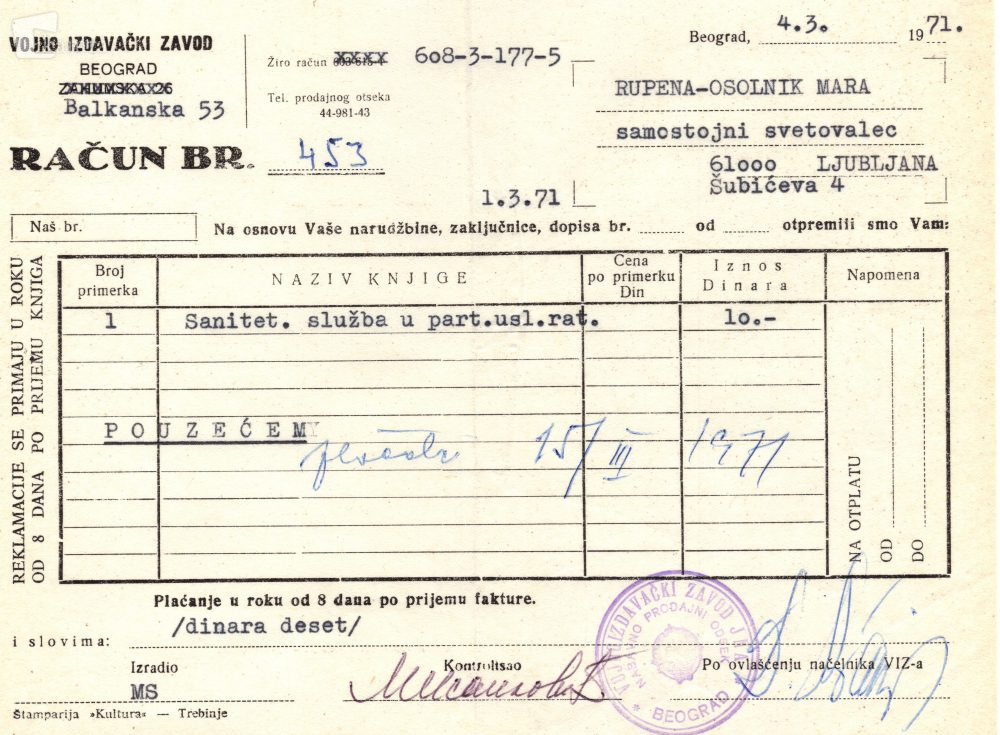 VOJNO IZDAVAČKI ZAVOD
BEOGRAD
ZAHUMSKA 26
Balkanska 53
Žiro račun 608-3-177-5
Tel. prodajnog otseka
44-981-43
Beograd, 4.3. 1971.
RUPENA-OSOLNIK MARA
samostojni svetovalec
61000 LJUBLJANA
Šubićeva 4
RAČUN BR. 453
1.3.71
Naš br.
Na osnovu Vaše narudžbine, zaključnice, dopisa br. od otpremili smo Vam:
REKLAMACIJE SE PRIMAJU U ROKU
OD 8 DANA PO PRIJEMU KNJIGA
Broj primerka
NAZIV KNJIGE
Cena po primerku Din
Iznos Dinara
Napomena
1 Sanitet. služba u part.usl.rat. 10.-
POUZEĆEM
15/III 1971
NA OTPLATU
OD
DO
Plaćanje u roku od 8 dana po prijemu fakture.
i slovima: /dinara deset/
Izradio
MS
Kontrolisao
Po ovlašćenju načelnika VIZ-a
VOJNOIZDAVAČKI ZAVOD JNA
NABAVNO PRODAJNI ODSEK
* BEOGRAD *
Štamparija »Kultura« — Trebinje